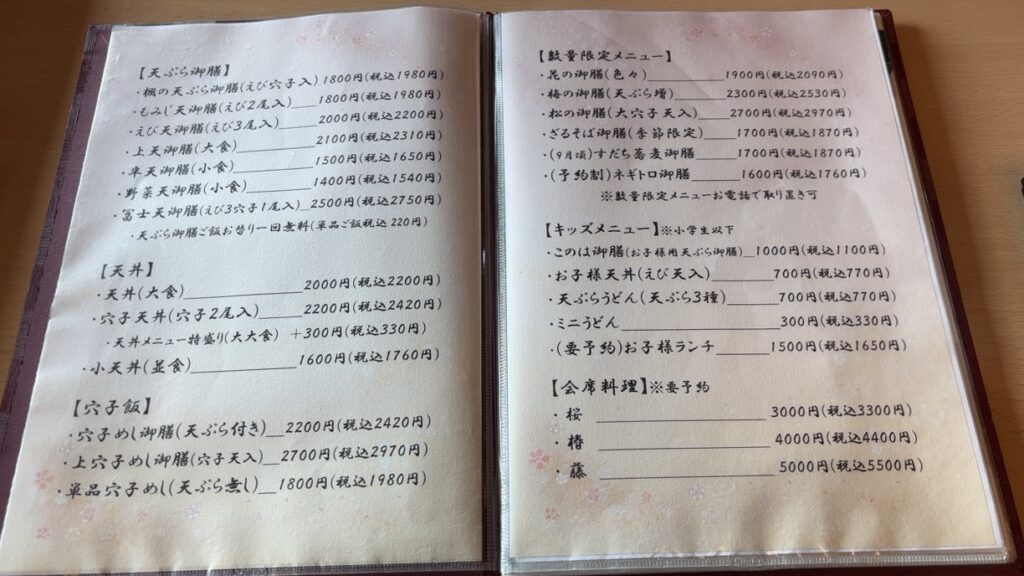 【天ぷら御膳】
・楓の天ぷら御膳(えび穴子入)1800円(税込1980円)
・もみじ天御膳(えび2尾入)___1800円(税込1980円)
・えび天御膳(えび3尾入)___2000円(税込2200円)
・上天御膳(大食)___2100円(税込2310円)
・半天御膳(小食)___1500円(税込1650円)
・野菜天御膳(小食)___1400円(税込1540円)
・冨士天御膳(えび3穴子1尾入)_2500円(税込2750円)
・天ぷら御膳ご飯お替り一回無料(単品ご飯税込 220円)
【天丼】
・天丼(大食)___2000円(税込2200円)
・穴子天丼(穴子2尾入)___2200円(税込2420円)
・天丼メニュー特盛り(大大食) +300円(税込330円)
・小天丼(並食)___1600円(税込1760円)
【穴子飯】
・穴子めし御膳(天ぷら付き)_2200円(税込2420円)
・上穴子めし御膳(穴子天入)_2700円(税込2970円)
・単品穴子めし(天ぷら無し)_1800円(税込1980円)
【数量限定メニュー】
・花の御膳(色々)___1900円(税込2090円)
・梅の御膳(天ぷら増)___2300円(税込2530円)
・松の御膳(大穴子天入)___2700円(税込2970円)
・ざるそば御膳(季節限定)___1700円(税込1870円)
・(9月頃)すだち蕎麦御膳___1700円(税込1870円)
・(予約制)ネギトロ御膳___1600円(税込1760円)
※数量限定メニューお電話で取り置き可
【キッズメニュー】※小学生以下
・このは御膳(お子様用天ぷら御膳)_1000円(税込1100円)
・お子様天丼(えび天入)___700円(税込770円)
・天ぷらうどん(天ぷら3種)___700円(税込770円)
・ミニうどん___300円(税込330円)
・(要予約)お子様ランチ___1500円(税込1650円)
【会席料理】※要予約
・桜___3000円(税込3300円)
・椿___4000円(税込4400円)
・藤___5000円(税込5500円)